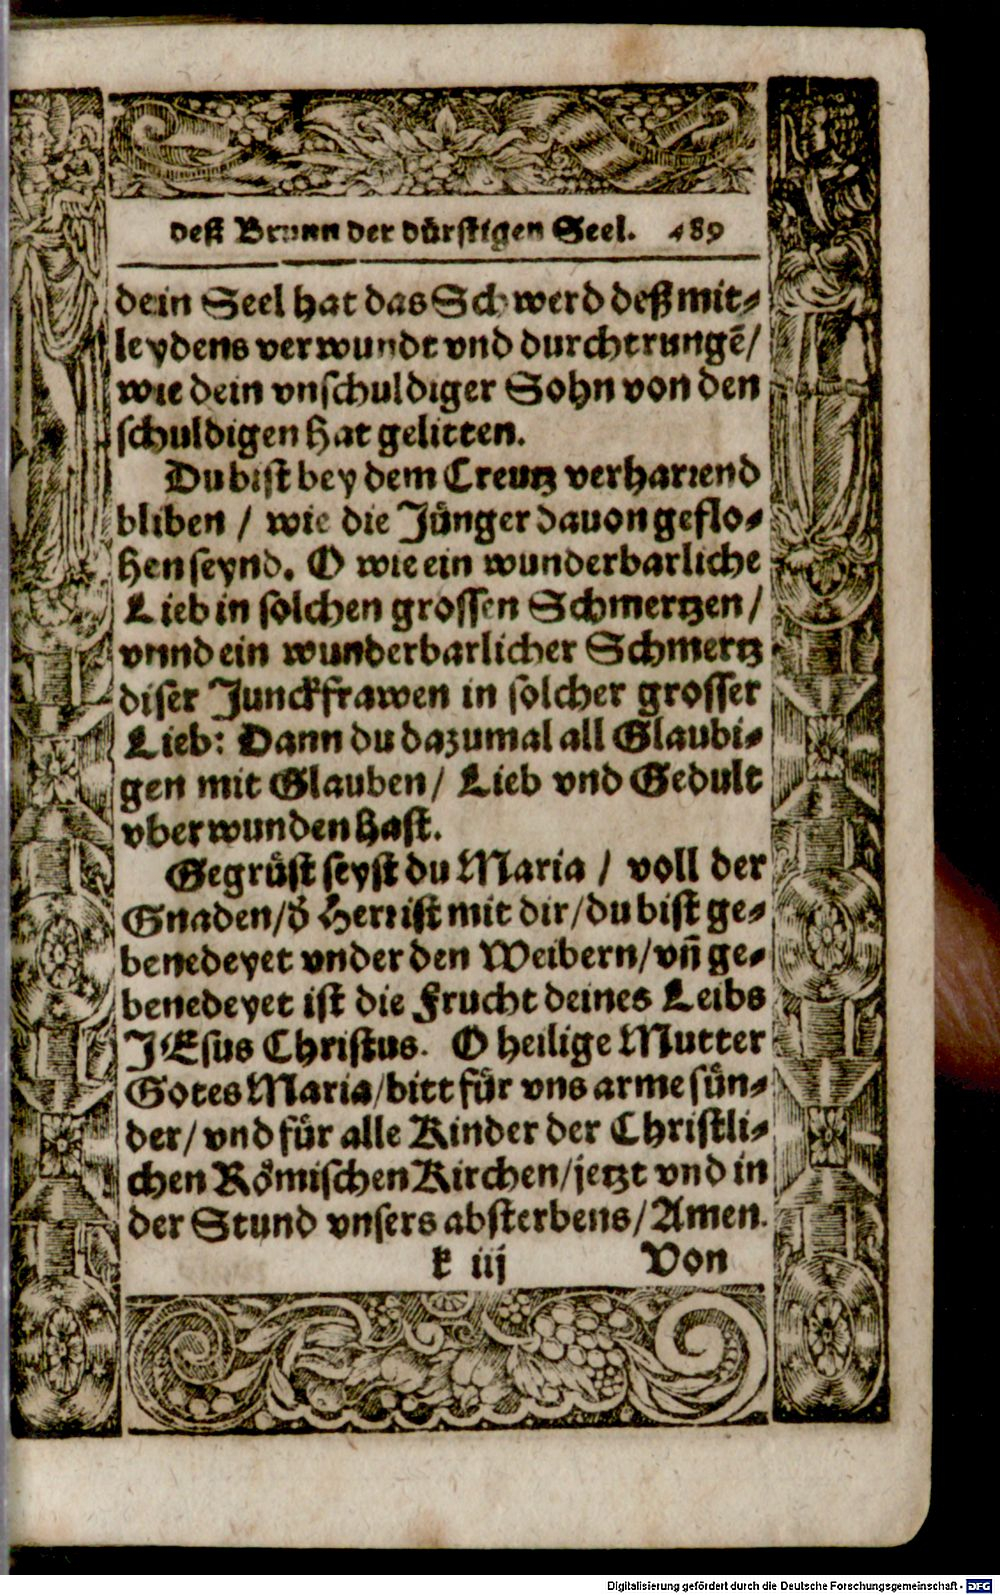 deß Brunn der dürstigen Seel. 489
dein Seel hat das Schwerd deß mit-
leydens verwundt vnd durchtrungẽ/
wie dein vnschuldiger Sohn von den
schuldigen hat gelitten.
Du bist bey dem Creutz verharrend
bliben / wie die Jünger dauon geflo-
hen seynd. O wie ein wunderbarliche
Lieb in solchen grossen Schmertzen /
vnnd ein wunderbarlicher Schmertz
diser Junckfrawen in solcher grosser
Lieb: Dann du dazumal all Glaubi-
gen mit Glauben / Lieb vnd Gedult
vberwunden hast.
Gegrüst seyst du Maria / voll der
Gnaden/ď Herr ist mit dir/du bist ge-
benedeyet vnder den Weibern/vñ ge-
benedeyet ist die Frucht deines Leibs
JEsus Christus. O heilige Mutter
Gotes Maria/bitt für vns arme sün-
der/ vnd für alle Kinder der Christli-
chen Römischen Kirchen/jetzt vnd in
der Stund vnsers absterbens/Amen.
k iij Von
Digitalisierung gefördert durch die Deutsche Forschungsgemeinschaft - DFG